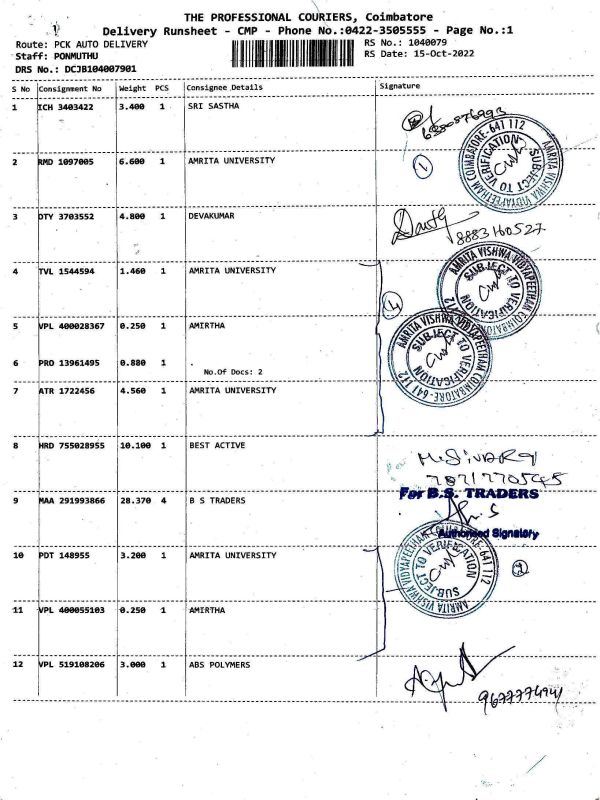 THE PROFESSIONAL COURIERS, Coimbatore
Delivery Runsheet - CMP - Phone No.:0422-3505555 - Page No.:1
Route: PCK AUTO DELIVERY
RS No.: 1040079
Staff: PONMUTHU
RS Date: 15-Oct-2022
DRS No.: DCJB104007901
S No Consignment No Weight PCS Consignee Details Signature
1 ICH 3403422 3.400 1 SRI SASTHA
AMRITA VISHWA VIDYAPEETHAM COIMBATORE-641 112
SUBJECT TO VERIFICATION
2 RMD 1097005 6.600 1 AMRITA UNIVERSITY
1
3 DTY 3703552 4.800 1 DEVAKUMAR
8883160527
4 TVL 1544594 1.460 1 AMRITA UNIVERSITY
AMRITA VISHWA VIDYAPEETHAM COIMBATORE
SUBJECT TO VERIFICATION
4
5 VPL 400028367 0.250 1 AMIRTHA
AMRITA VISHWA VIDYAPEETHAM COIMBATORE-641 112
SUBJECT TO VERIFICATION
6 PRO 13961495 0.880 1 .
No.Of Docs: 2
7 ATR 1722456 4.560 1 AMRITA UNIVERSITY
8 HRD 755028955 10.100 1 BEST ACTIVE
For B.S. TRADERS
9 MAA 291993866 28.370 4 B S TRADERS
Authorised Signatory
10 PDT 148955 3.200 1 AMRITA UNIVERSITY
AMRITA VISHWA VIDYAPEETHAM COIMBATORE-641 112
SUBJECT TO VERIFICATION
2
11 VPL 400055103 0.250 1 AMIRTHA
12 VPL 519108206 3.000 1 ABS POLYMERS